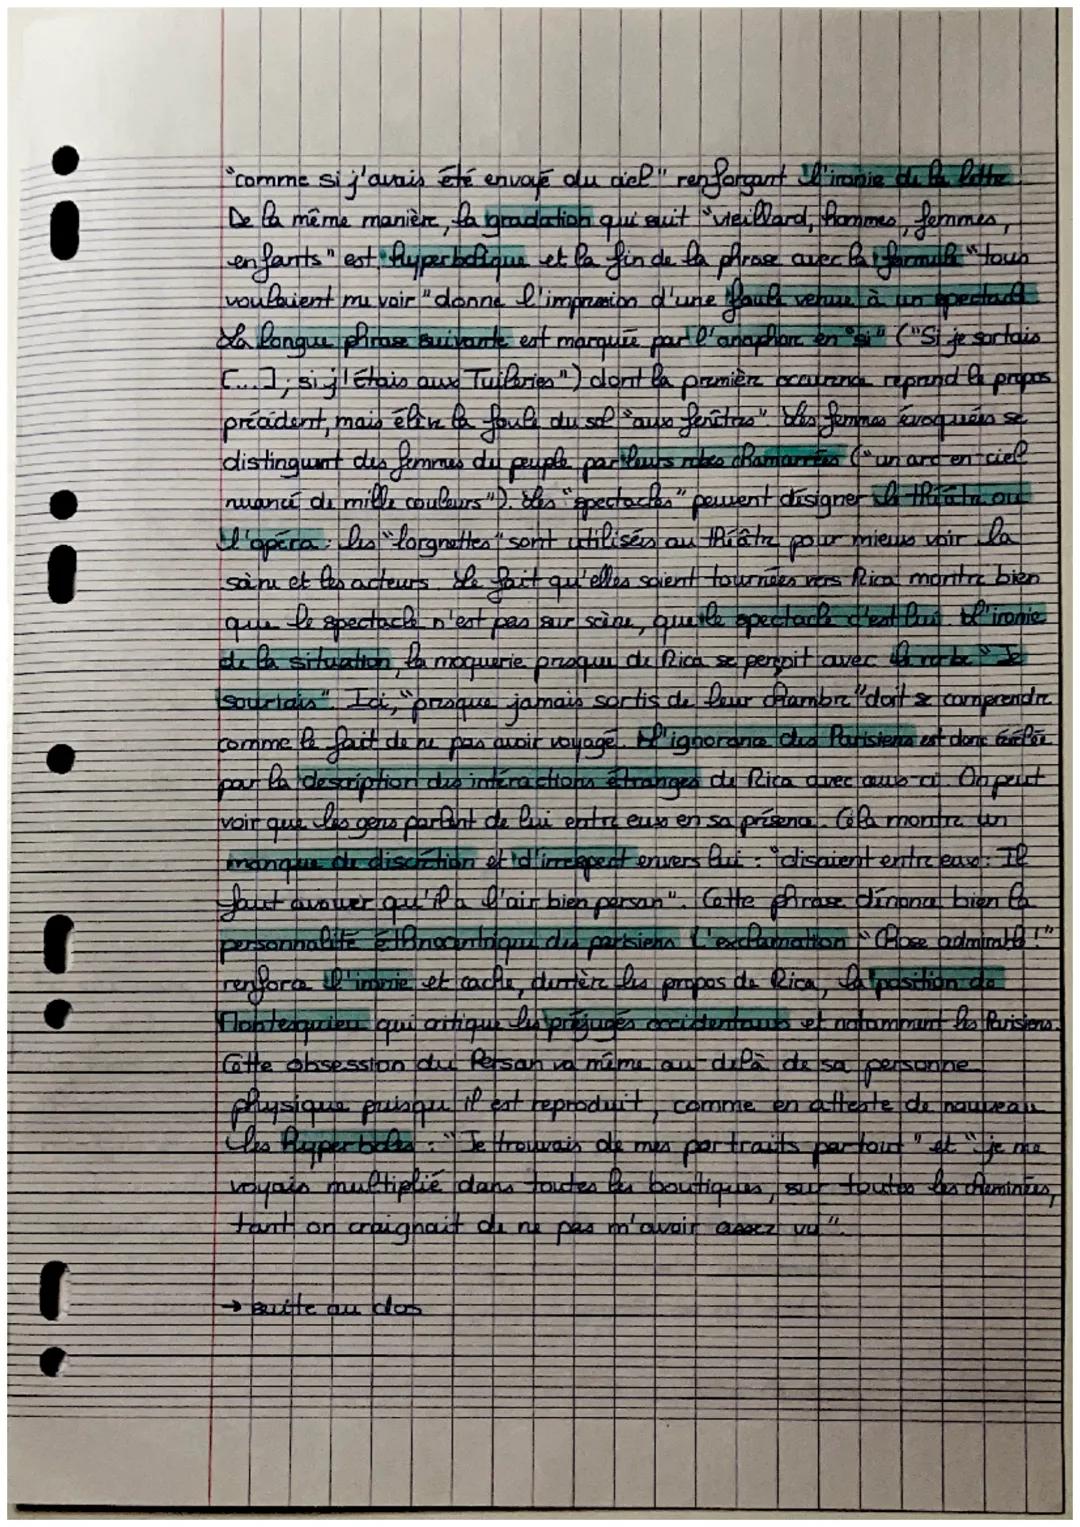 "comme si j'avais été envoyé du ciel" renforçant l'ironie de la lettre.
De la même manière, la gradation qui suit "vieillard, hommes, femmes,
enfants" est hyperbolique et la fin de la phrase avec la formule "tous
voulaient me voir" donne l'impression d'une foule venue à un spectacle.
La longue phrase suivante est marquée par l'anaphore en "si" ("Si je sortais
[...], si j'étais aux Tuileries") dont la première occurence reprend le propos
précédent, mais élève la foule du sol "aux fenêtres". Les femmes évoquées se
distinguent des femmes du peuple par leurs robes chamarrées ("un arc en ciel
nuancé de mille couleurs"). Les "spectacles" peuvent désigner le théâtre ou
l'opéra : les "lorgnettes" sont utilisées au théâtre pour mieux voir la
scène et les acteurs. Le fait qu'elles soient tournées vers Rica montre bien
que le spectacle n'est pas sur scène, que le spectacle c'est lui. L'ironie
de la situation, la moquerie presque de Rica se perçoit avec le verbe "Je
souriais". Ici, "presque jamais sortis de leur chambre" doit se comprendre
comme le fait de ne pas avoir voyagé. L'ignorance des Parisiens est donc
par la description des intéractions étranges de Rica avec ceux ci. On peut
voir que les gens parlent de lui entre eux en sa présence. Cela montre un
manque de discrétion et d'irrespect envers lui : "disaient entre eux : Il
faut avouer qu'il a l'air bien persan". Cette phrase dénonce bien la
personnalité éthnocentrique des parisiens. L'exclamation "Chose admirable !"
renforce l'ironie et cache, derrière les propos de Rica, la position de
Montesquieu qui critique les préjugés occidentaux et notamment les Parisiens.
Cette obsession du Persan va même au-delà de sa personne
physique puisqu'il est reproduit, comme en atteste de nouveau
les hyperboles : "Je trouvais de mes portraits partout" et "je me
voyais multiplié dans toutes les boutiques, sur toutes les cheminées,
tant on craignait de ne pas m'avoir assez vu".
→ suite au dos